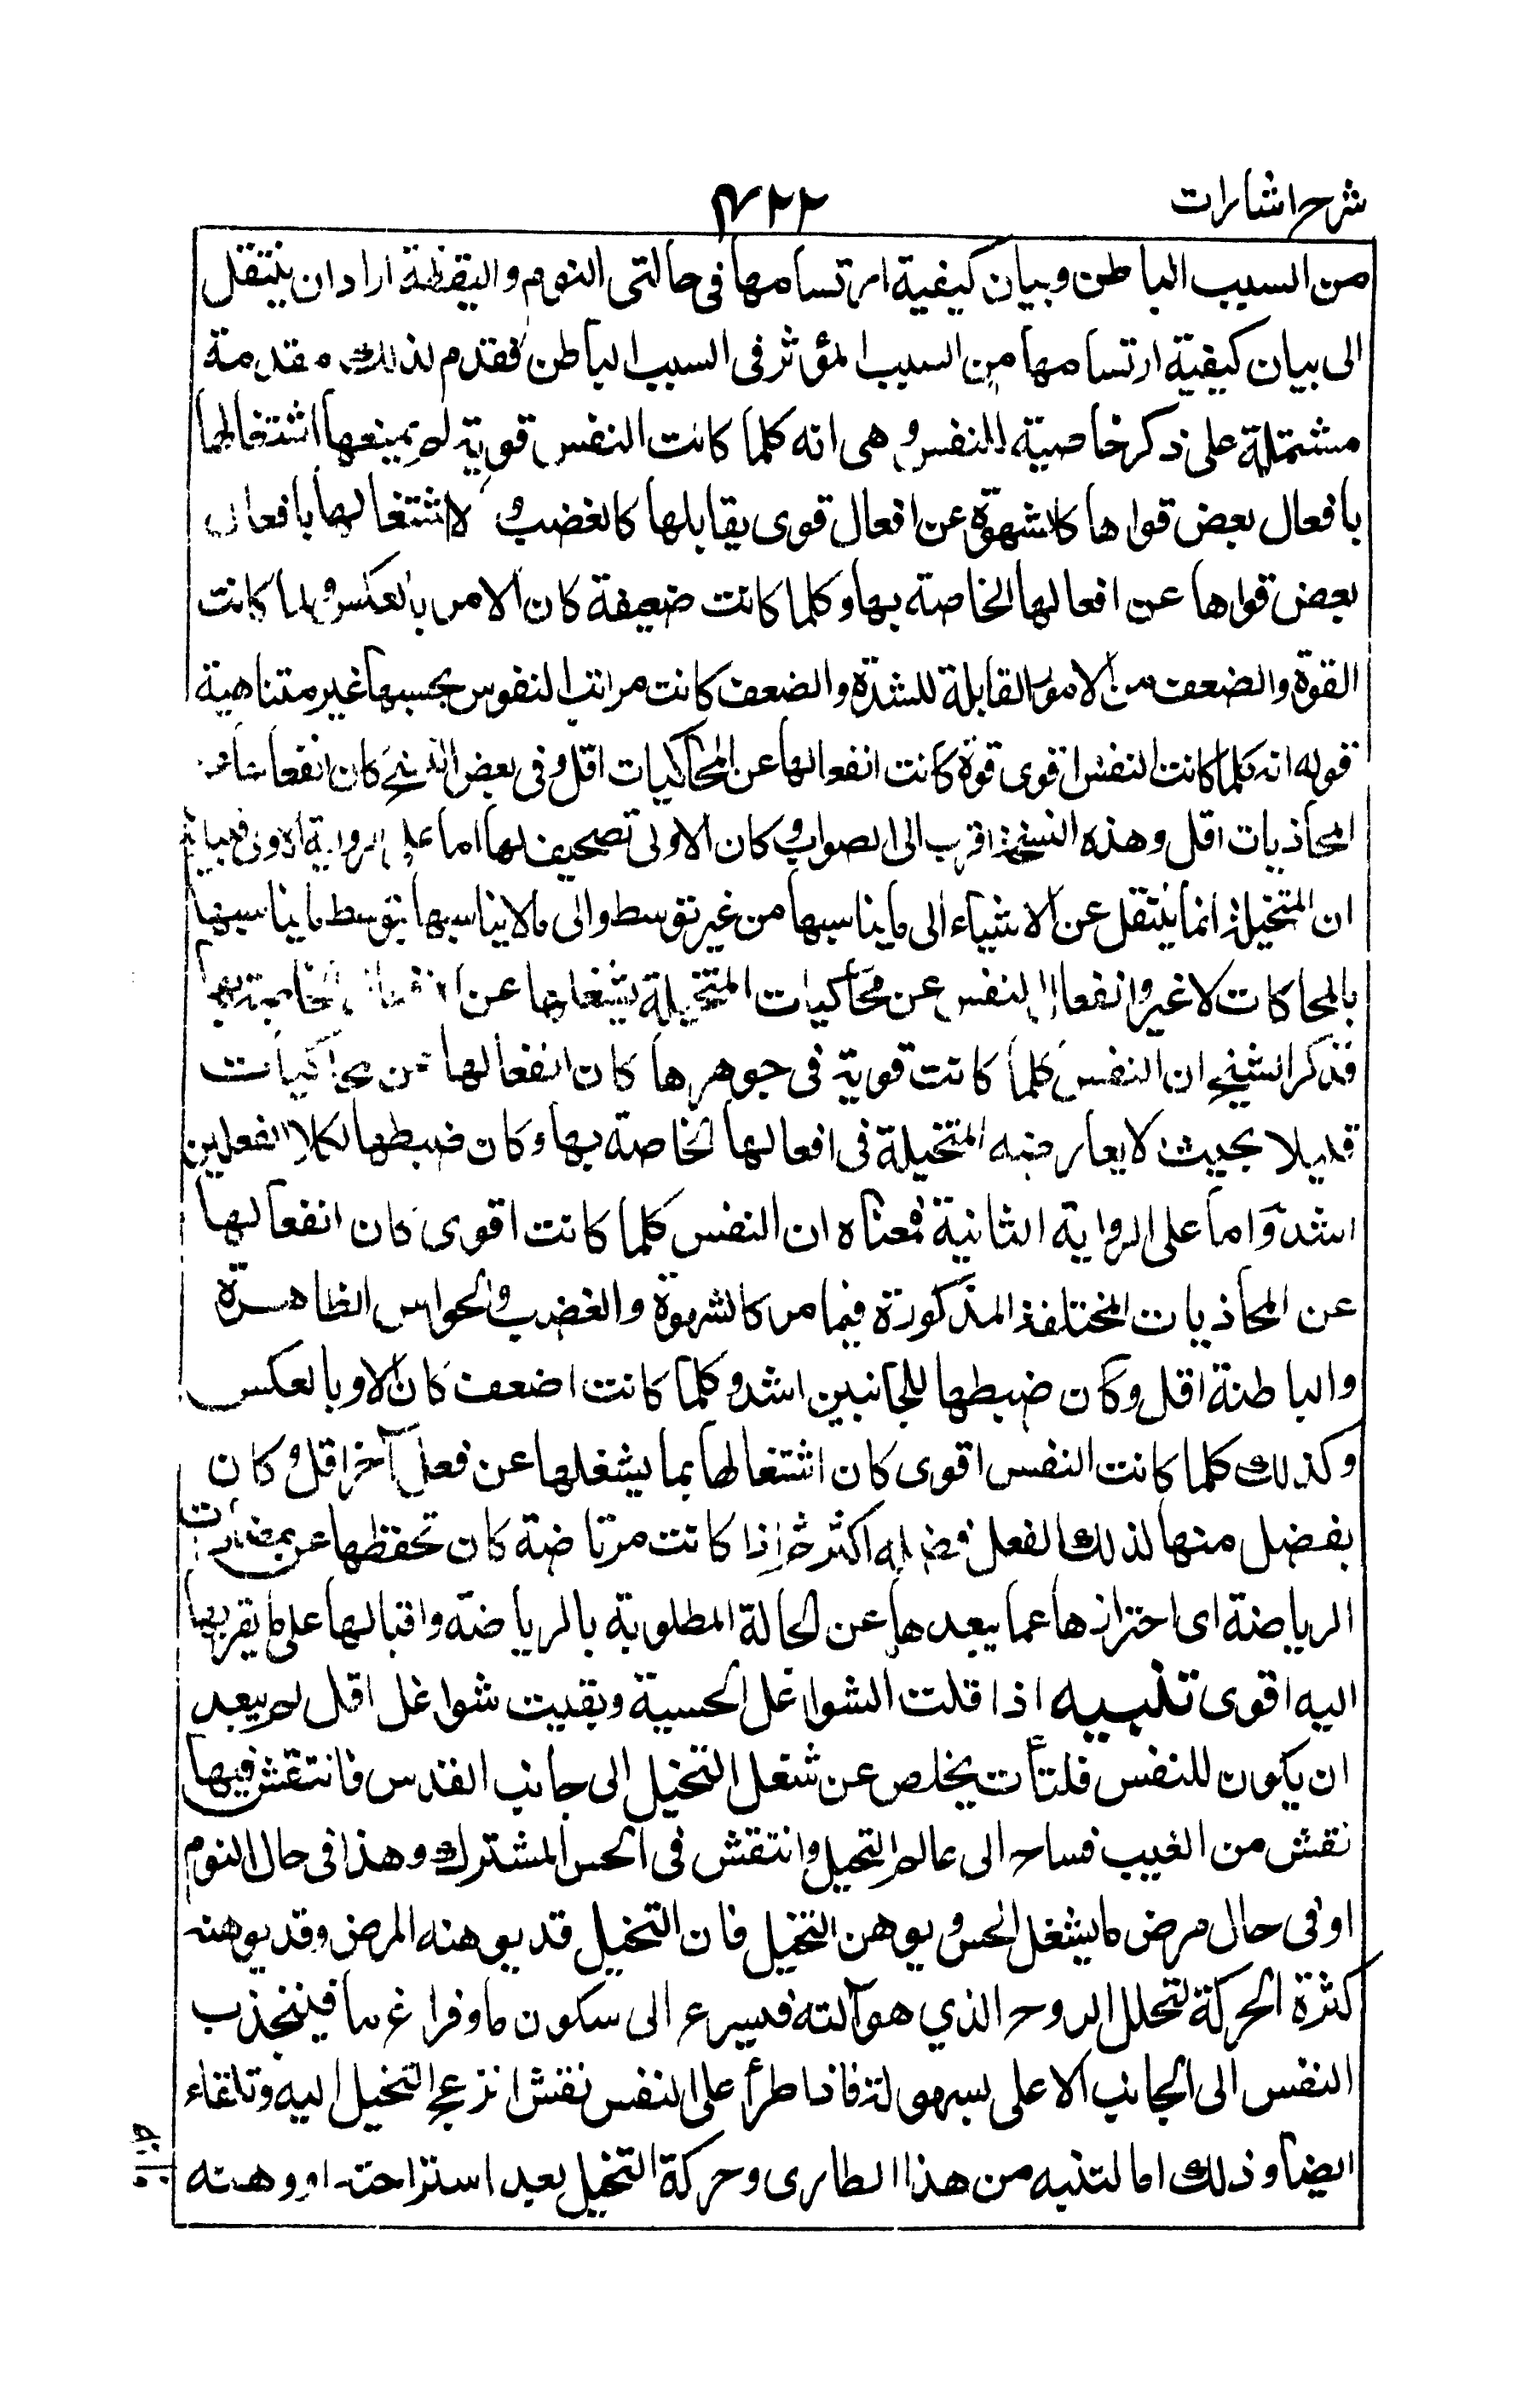 شرح اشارات
٤٢٢
من السبب الباطن وبيان كيفية ارتسامها فى حالتى النوم واليقظة اراد ان ينتقل
الى بيان كيفية ارتسامها من السبب المؤثر فى السبب الباطن فقدم لذلك مقدمة
مشتملة على ذكر خاصية للنفس وهى انه كلما كانت النفس قوية لم يمنعها اشتغالها
بافعال بعض قواها كالشهوة عن افعال قوى يقابلها كالغضب ولا اشتغالها بافعال
بعض قواها عن افعالها الخاصة بها وكلما كانت ضعيفة كان الامر بالعكس ولما كانت
القوة والضعف من الامور القابلة للشدة والضعف كانت مراتب النفوس بحسبها غير متناهية
قوله انه كلما كانت النفس اقوى قوة كانت انفعالها عن المحاكيات اقل وفى بعض النسخ كان انفعالها عن
المحاذيات اقل وهذه النسخة اقرب الى الصواب وكان الاولى تصحيف لها اما على الرواية الاولى فبيانه
ان المتخيلة انما ينتقل عن الاشياء الى ما يناسبها من غير توسط والى ما لا يناسبها بتوسط ما يناسبها
بالمحاكات لا غير وانفعال النفس عن محاكيات المتخيلة يشغلها عن الخاصة بها
فذكر الشيخ ان النفس كلما كانت قوية فى جوهرها كان انفعالها عن محاكيات
قليلا بحيث لا يعارضه المتخيلة فى افعالها الخاصة بها وكان ضبطها لكلا الفعلين
اشد واما على الرواية الثانية فمعناه ان النفس كلما كانت اقوى كان انفعالها
عن المحاذيات المختلفة المذكورة فيما مر كالشهوة والغضب والحواس الظاهرة
والباطنة اقل وكان ضبطها للجانبين اشد وكلما كانت اضعف كان الاو بالعكس
وكذلك كلما كانت النفس اقوى كان اشتغالها بما يشغلها عن فعل آخر اقل وكان
يفضل منها لذلك الفعل فضله اكثر ثم اذا كانت مرتاضة كان تحفظها عن مضادات
الرياضة اى احترازها عما يبعدها عن الحالة المطلوبة بالرياضة واقبالها على ما يقربها
اليه اقوى تنبيه اذا قلت الشواغل الحسية وبقيت شواغل اقل لم يبعد
ان يكون للنفس فلتات يخلص عن شغل التخيل الى جانب القدس فانتقش فيها
نقش من الغيب فساح الى عالم التخيل وانتقش فى الحس المشترك وهذا فى حال النوم
او فى حال مرض ما يشغل الحس ويوهن التخيل فان التخيل قد يوهنه المرض وقد يوهنه
كثرة الحركة لتحلل الروح الذي هو آلته فيسرع الى سكون ما وفراغ ما فينجذب
النفس الى الجانب الاعلى بسهولة فاذا طرأ على النفس نقش انزعج التخيل اليه وتلقاء
ايضا وذلك اما لتنبه من هذا الطارى وحركة التخيل بعد استراحته او وهنه